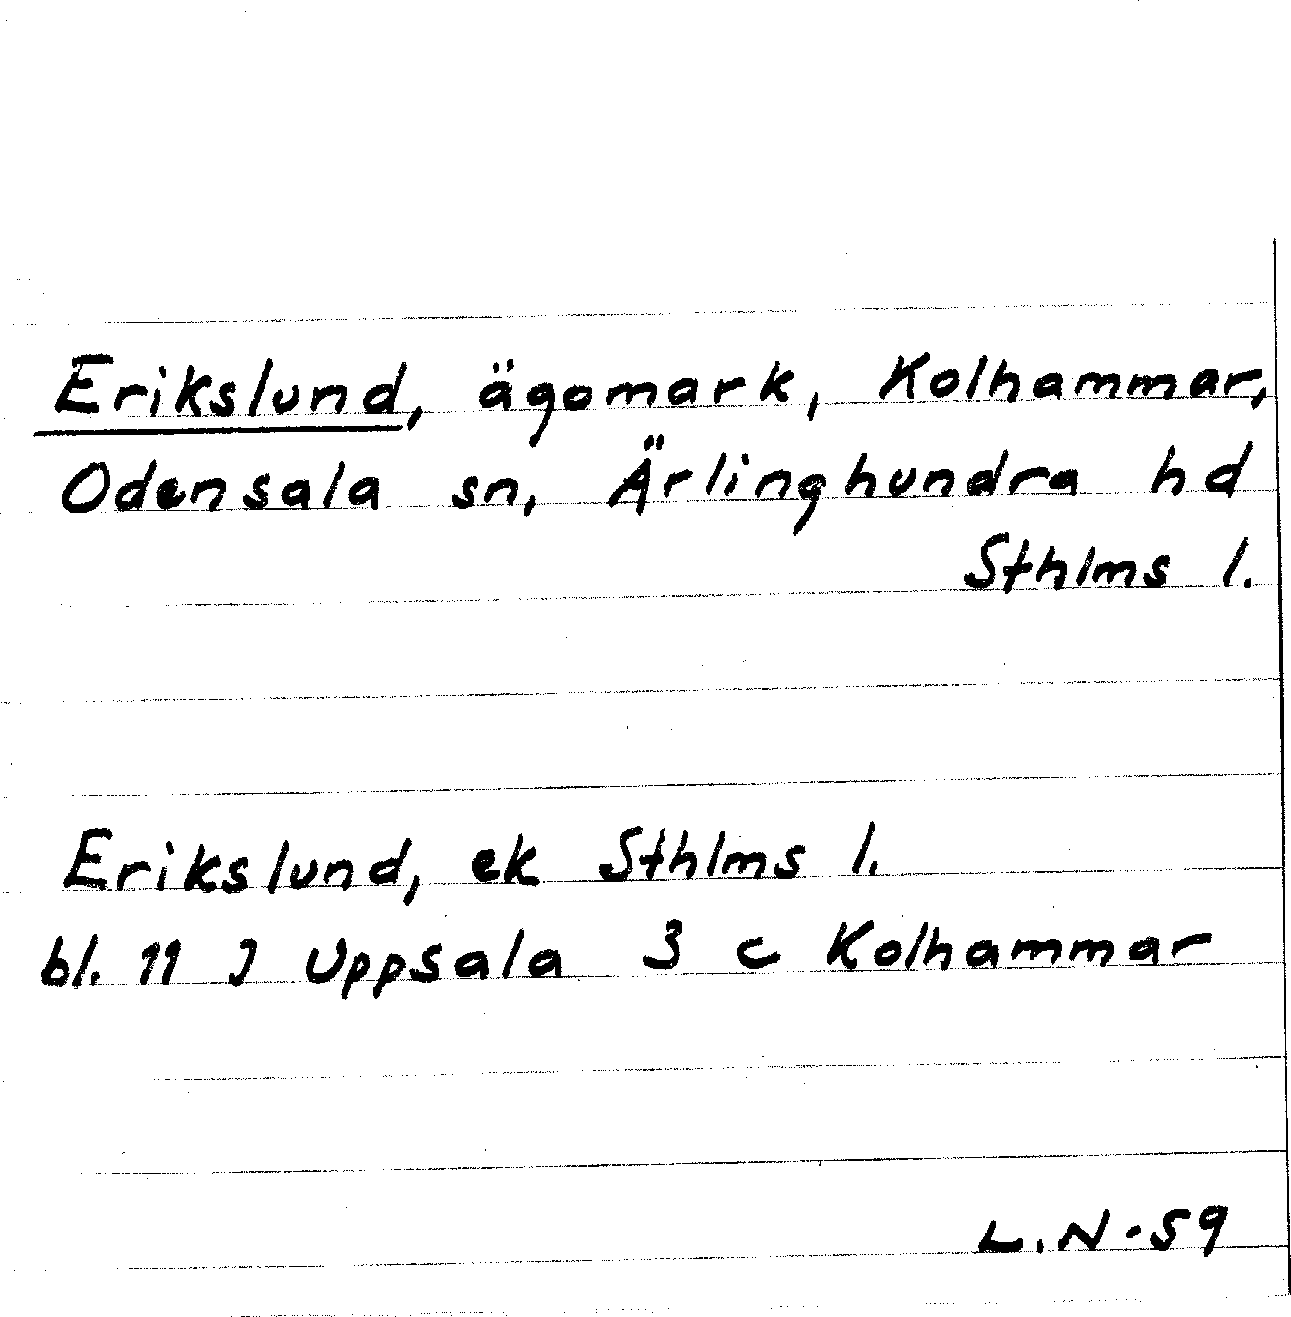 Erikslund, ägomark, Kolhammar,
Odensala sn, Ärlinghundra hd
Sthlms l.
Erikslund, ek Sthlms l.
bl. 11 J Uppsala 3 c Kolhammar
L.N-59